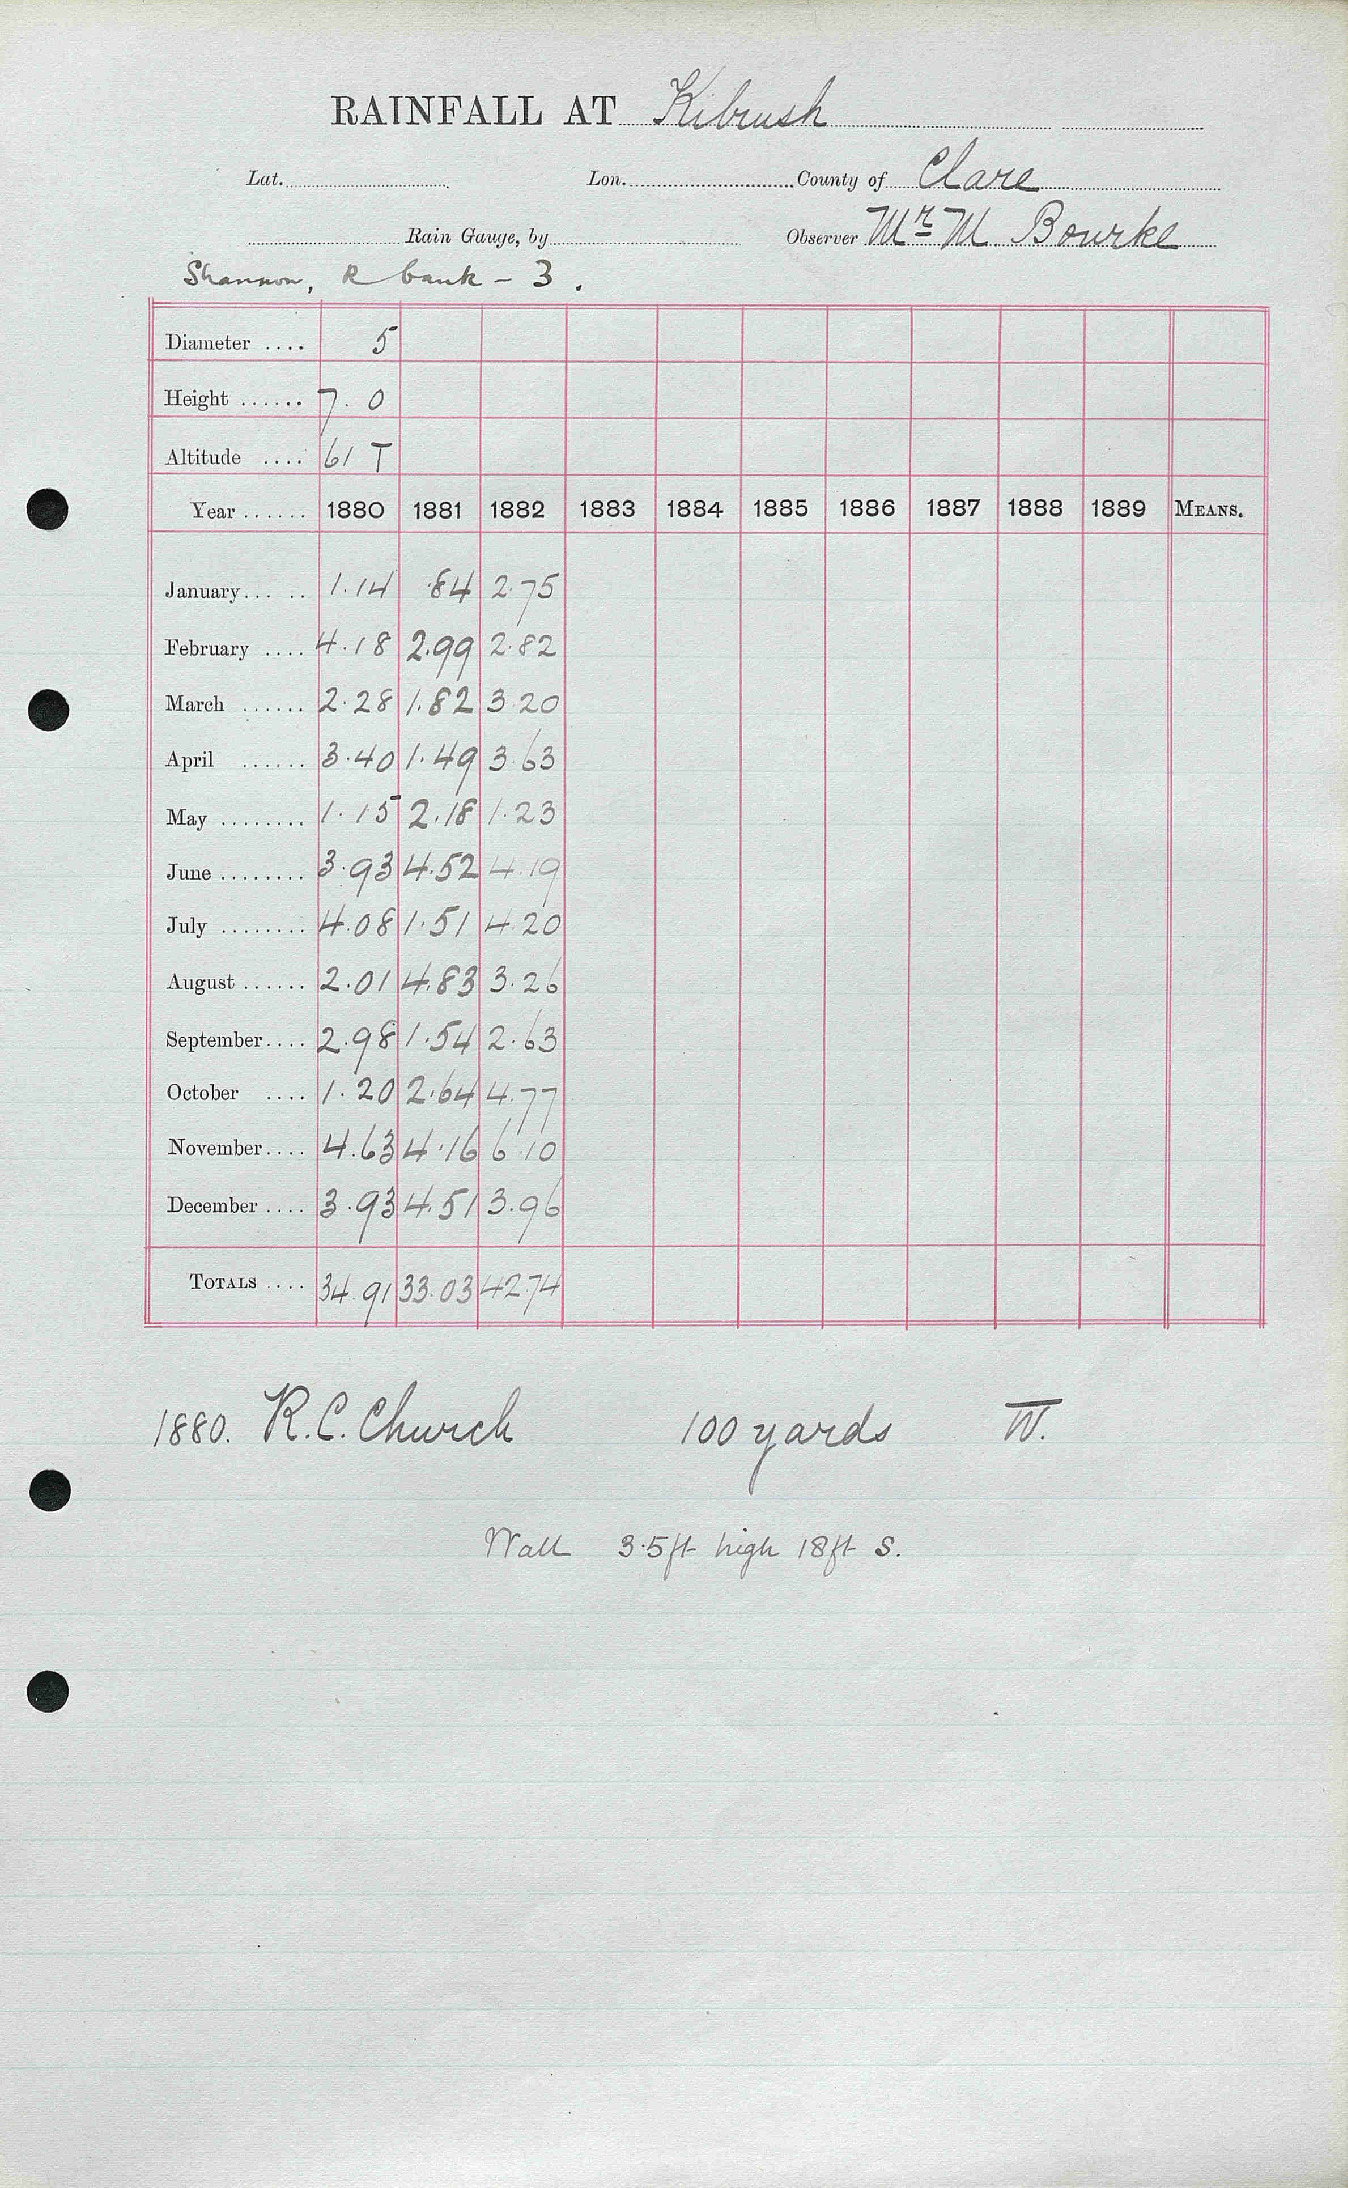 RAINFALL AT Kilrush
Lat. Lon. County of Clare
Rain Gauge, by Observer Mr M Bourke
Shannon, R bank - 3.
Diameter .... 5
Height ...... 7. 0
Altitude .... 61 T
Year ...... 1880 1881 1882 1883 1884 1885 1886 1887 1888 1889 MEANS.
January... .. 1.14 .84 2.75
February .... 4.18 2.99 2.82
March ...... 2.28 1.82 3.20
April ...... 3.40 1.49 3.63
May ........ 1.15 2.18 1.23
June ........ 3.93 4.52 4.19
July ........ 4.08 1.51 4.20
August ...... 2.01 4.83 3.26
September.... 2.98 1.54 2.63
October .... 1.20 2.64 4.77
November.... 4.63 4.16 6.10
December .... 3.93 4.51 3.96
TOTALS .... 34.91 33.03 42.74
1880. R.C. Church 100 yards W.
Wall 3.5ft high 18ft S.